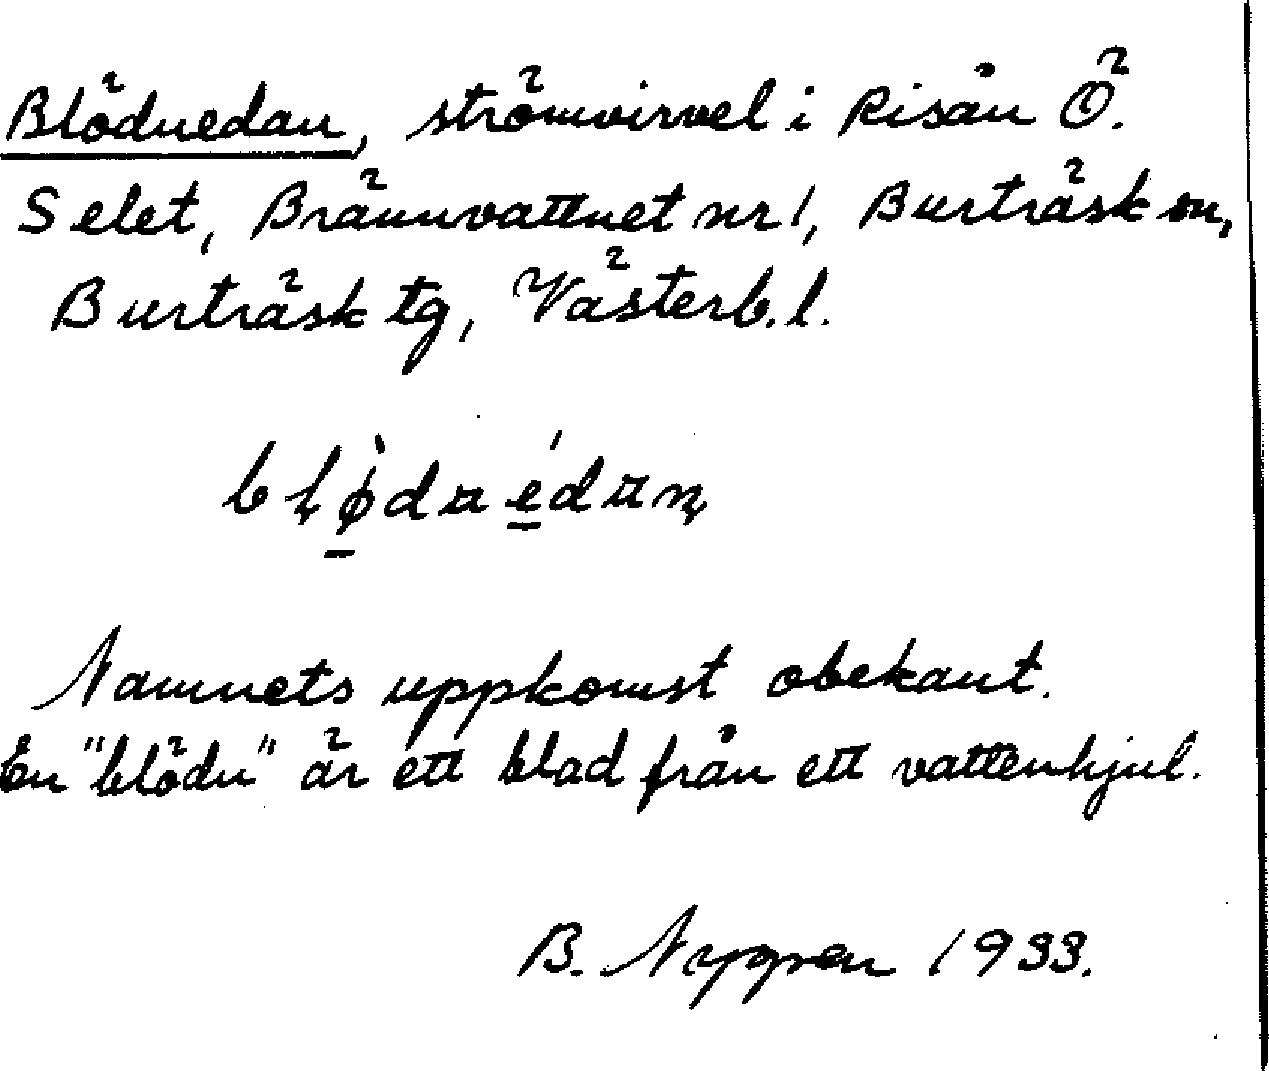 Blödnedan, strömvirvel i Risån Ö.
Selet, Brännvattnet nr 1, Burträsk sn,
Burträsk tg, Västerb. l.
Namnets uppkomst obekant.
En "blödu" är ett blad från ett vattenhjul.
B. Nygren 1933.